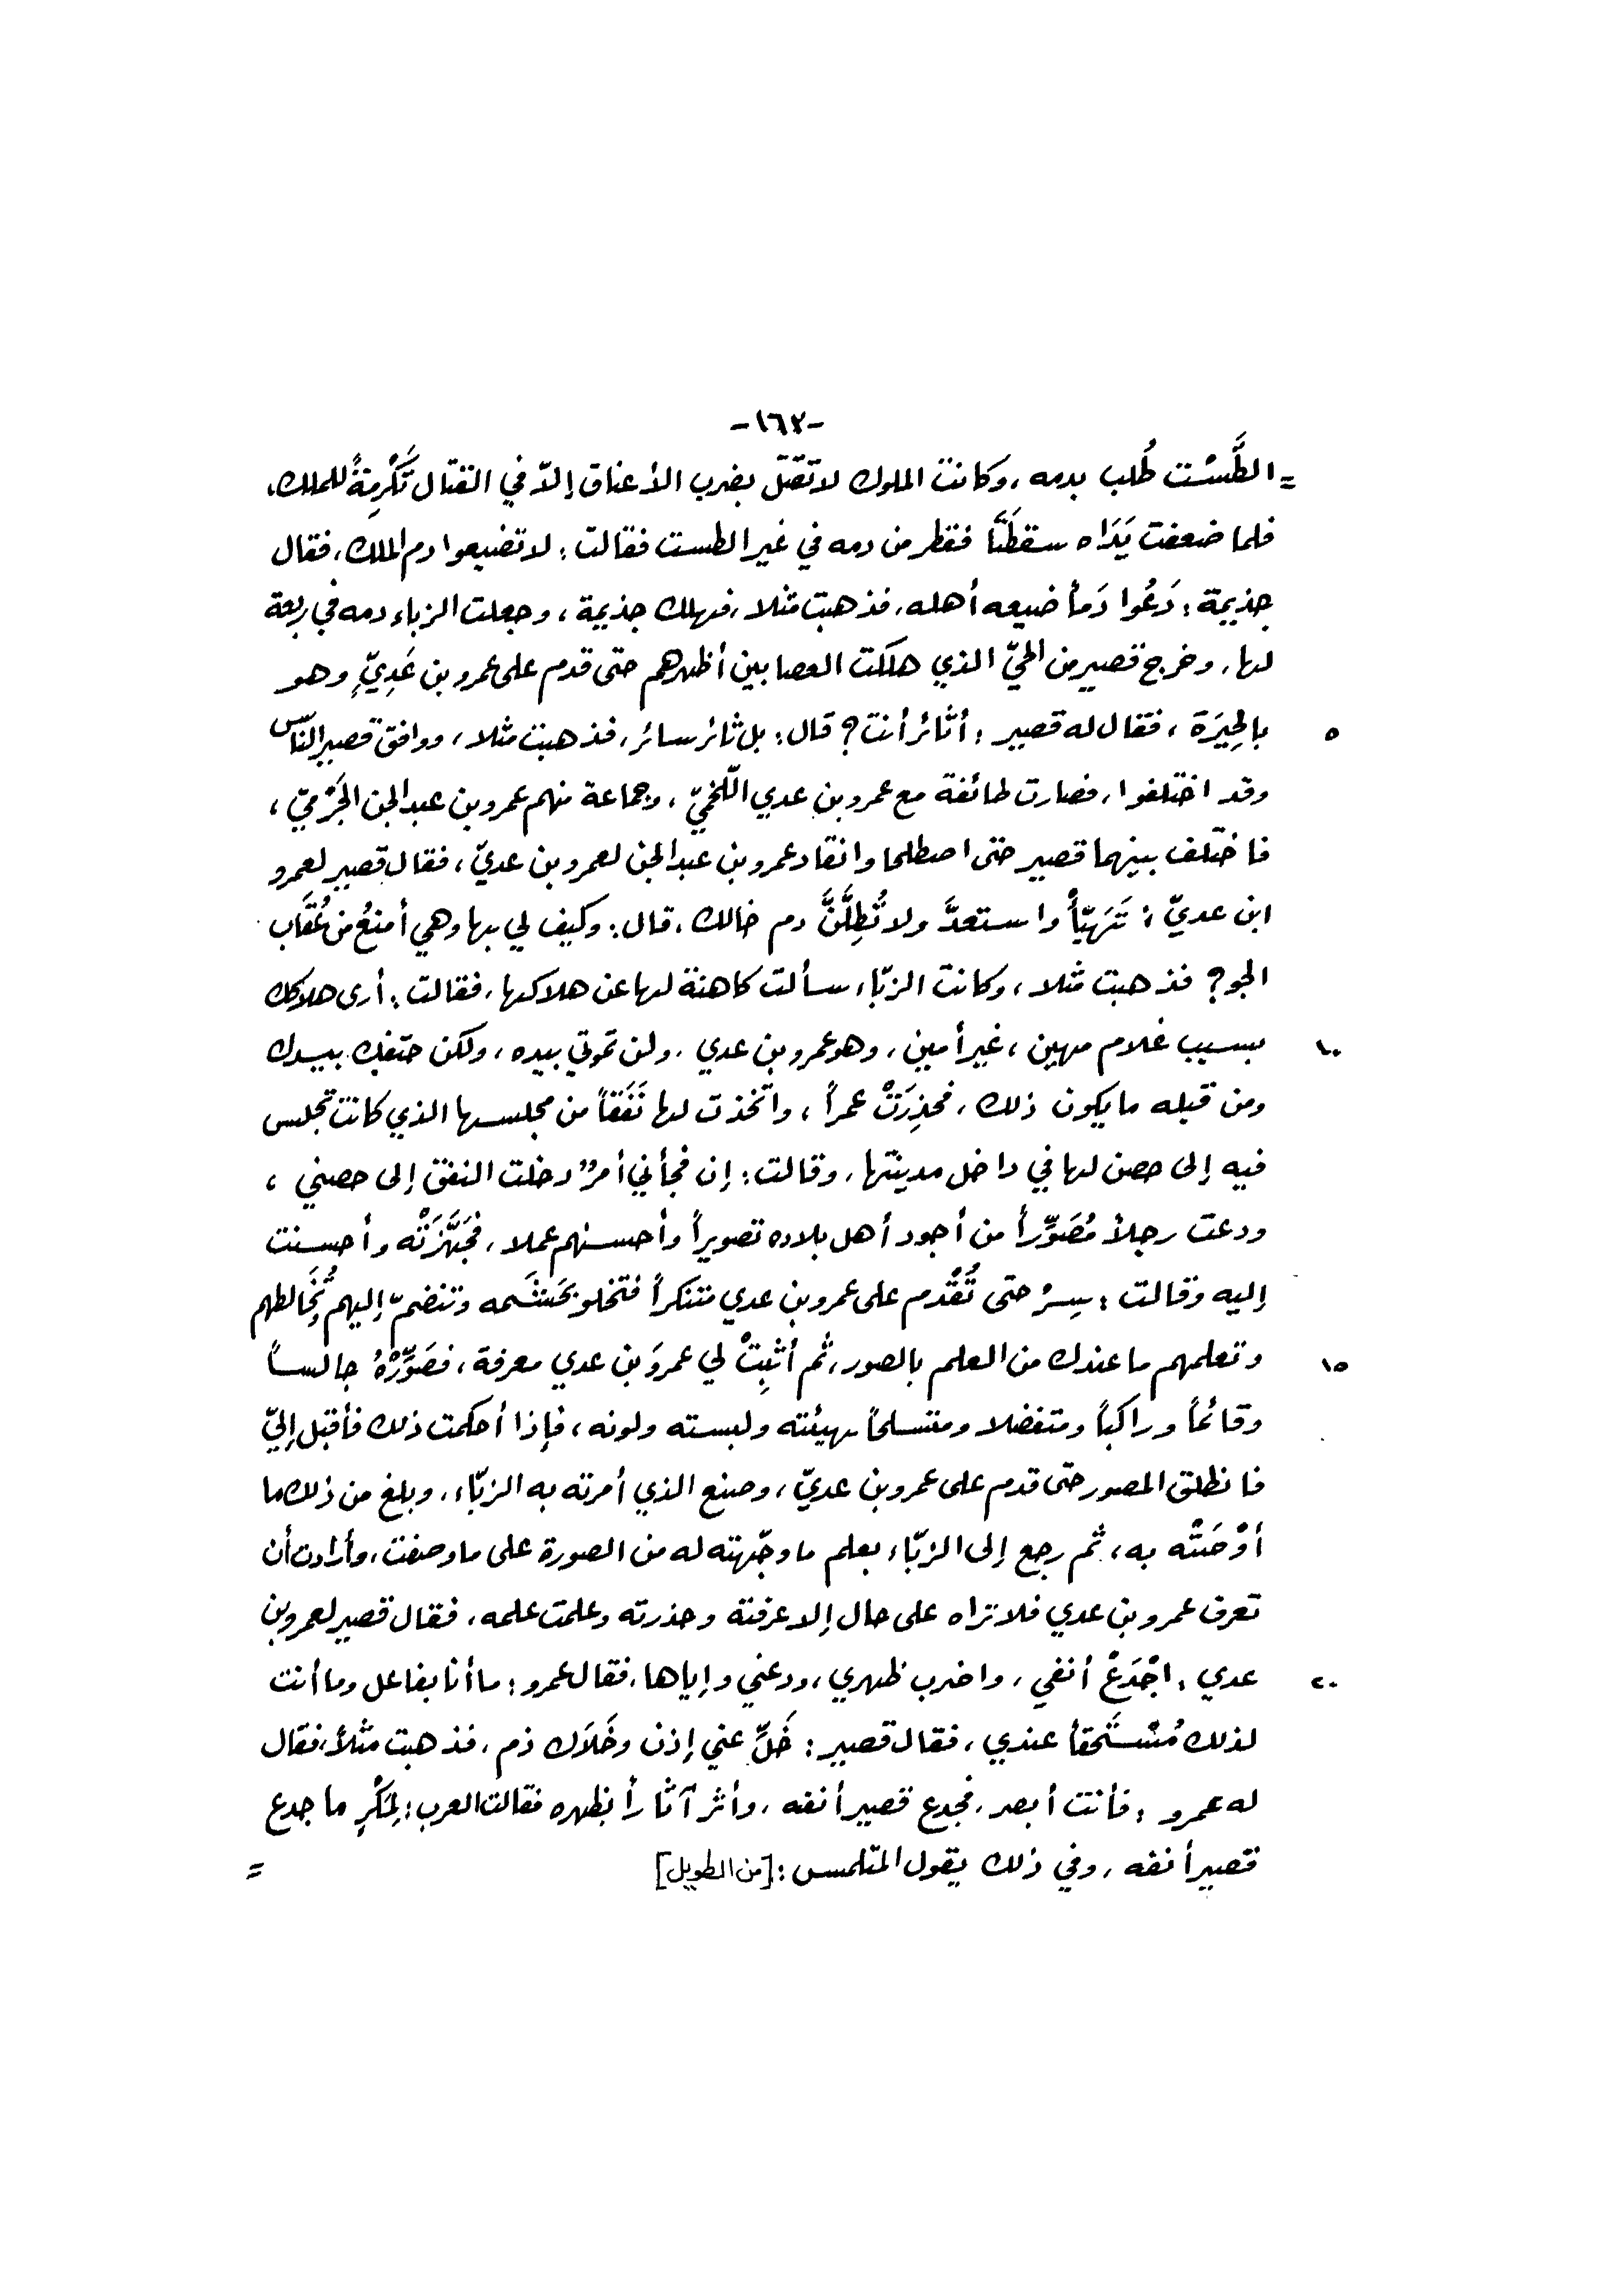 -١٦٢-
= الطَّسْت طُلب بدمه، وكانت الملوك لا تقتل بضرب الأعناق إلاّ في القتال تَكْرِمَةً للملك،
فلما ضعفت يَدَاه سقطَتَا فقطر من دمه في غير الطست فقالت: لا تضيعوا دم الملك، فقال
جذيمة: دَعُوا دَماً ضيعه أهله، فذهبت مثلا، فهلك جذيمة، وجعلت الزباء دمه في ربعة
لها، وخرج قصير من الحيّ الذي هلكت العصا بين أظهرهم حتى قدم على عمرو بن عَدِيٍّ وهو
٥ بالحِيَرَة، فقال له قصير: أثائر أنت؟ قال: بل ثائر سائر، فذهبت مثلا، ووافق قصير النّاس
وقد اختلفوا، فصارت طائفة مع عمرو بن عدي اللّخميّ، وجماعة منهم عمرو بن عبد الجن الجَرْميّ،
فاختلف بينهما قصير حتى اصطلحا وانقاد عمرو بن عبد الجن لعمرو بن عديّ، فقال قصير لعمرو
ابن عديّ: تَهَيّأْ واستعدَّ ولا تُطِلَّنَّ دم خالك، قال: وكيف لي بها وهي أمنعُ من عُقَاب
الجو؟ فذهبت مثلا، وكانت الزبّاء سألت كاهنة لها عن هلاكها، فقالت: أرى هلاكك
١٠ بسبب غلام مهين، غير أمين، وهو عمرو بن عدي، ولن تموتي بيده، ولكن حتفك بيدك
ومن قبله ما يكون ذلك، فحذِرَتْ عمراً، واتخذت لها نَفَقاً من مجلسها الذي كانت تجلس
فيه إلى حصن لها في داخل مدينتها، وقالت: إن فجأني أمرٌ دخلت النفق إلى حصني،
ودعت رجلاً مُصَوِّراً من أجود أهل بلاده تصويراً وأحسنهم عملا، فجَهَّزَتْه وأحسنت
إليه وقالت: سِرْ حتى تُقْدم على عمرو بن عدي متنكراً فتخلو بحَشَمه وتنضمّ إليهم تُخَالطهم
١٥ وتعلمهم ما عندك من العلم بالصور، ثم أثبِتْ لي عمرَو بن عدي معرفة، فصَوِّرْهُ جالساً
وقائماً وراكباً ومتفضلا ومتسلحاً بهيئته ولبسته ولونه، فإذا أحكمت ذلك فأقبل إليّ
فانطلق المصور حتى قدم على عمرو بن عديّ، وصنع الذي أمرته به الزبّاء، وبلغ من ذلك ما
أوْصَتْه به، ثم رجع إلى الزبّاء بعلم ما وجّهته له من الصورة على ما وصفت، وأرادت أن
تعرف عمرو بن عدي فلا تراه على حال إلا عرفته وحذرته وعلمت علمه، فقال قصير لعمرو بن
٢٠ عدي: اجْدَعْ أنفي، واضرب ظهري، ودعني وإياها، فقال عمرو: ما أنا بفاعل وما أنت
لذلك مُسْتَحقاً عندي، فقال قصير: خَلِّ عني إذن وخَلاَك ذم، فذهبت مثلاً، فقال
له عمرو: فأنت أبصر، فجدع قصير أنفه، وأثر آثاراً بظهره فقالت العرب: لِمَكْرٍ ما جدع
قصير أنفه، وفي ذلك يقول المتلمس: [من الطويل] =